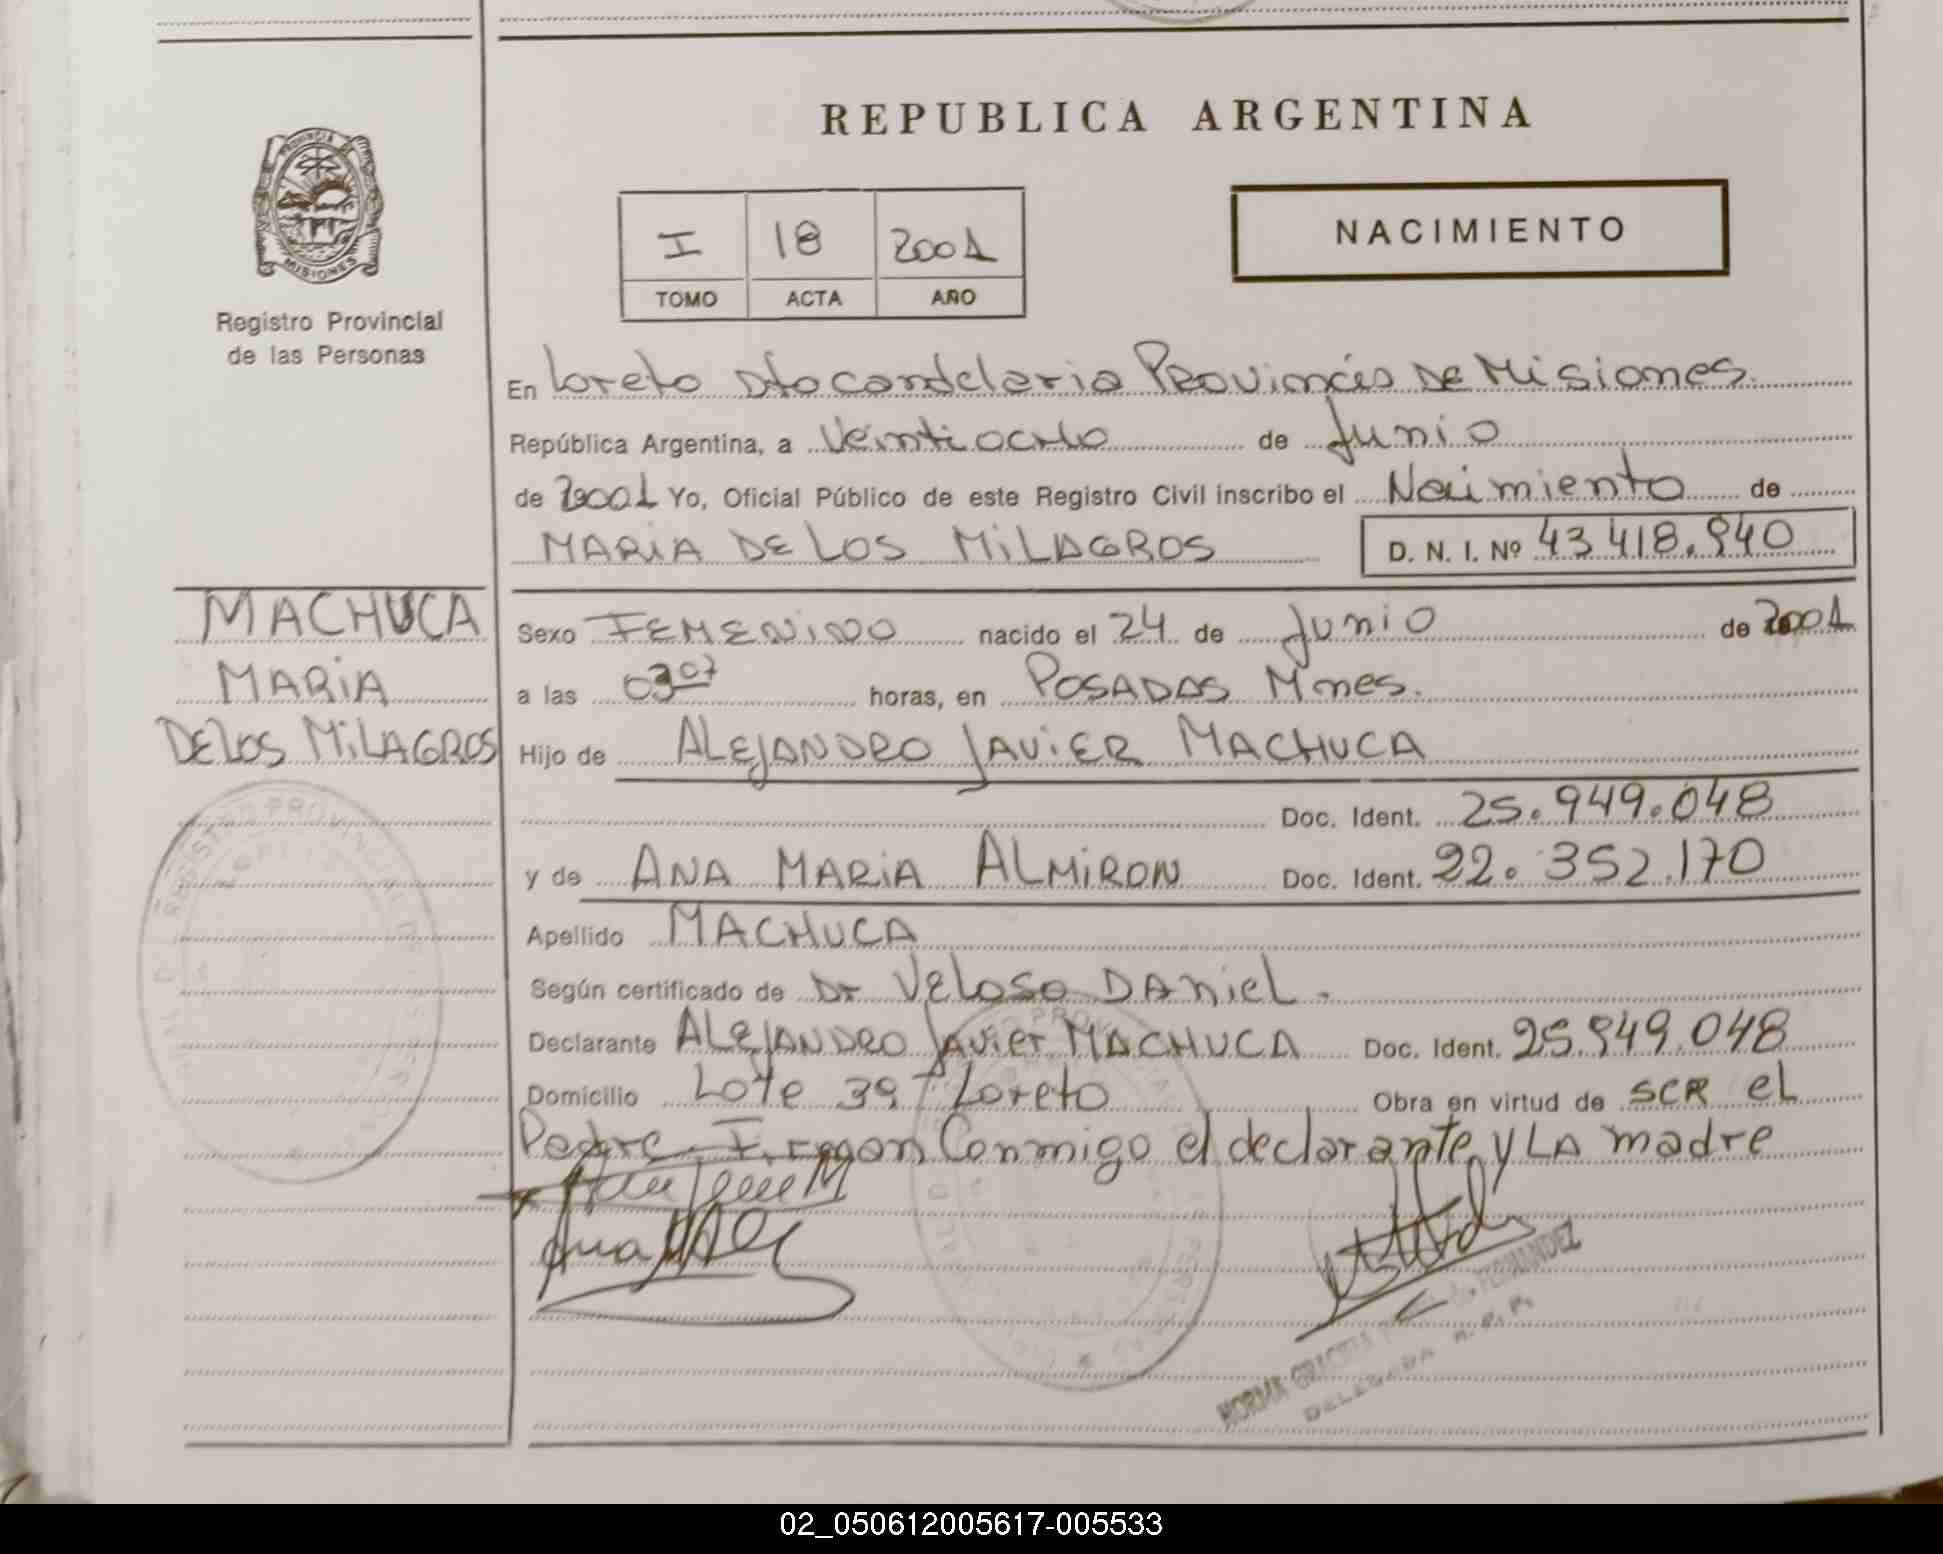 REPUBLICA ARGENTINA
PROVINCIA DE
MISIONES
Registro Provincial
de las Personas
I 18 2001
TOMO ACTA AÑO
NACIMIENTO
En Loreto Dto Candelaria Provincia De Misiones.
República Argentina, a Veintiocho de Junio
de 2001 Yo, Oficial Público de este Registro Civil inscribo el Nacimiento de
MARIA DE LOS MILAGROS D. N. I. Nº 43 418.940
MACHUCA
MARIA
DE LOS MILAGROS
Sexo FEMENINO nacido el 24 de Junio de 2001
a las 03 07 horas, en POSADAS Mnes.
Hijo de ALEJANDRO JAVIER MACHUCA
Doc. Ident. 25.949.048
y de ANA MARIA ALMIRON Doc. Ident. 22.352.170
Apellido MACHUCA
Según certificado de Dr VELOSO DANIEL.
Declarante ALEJANDRO JAVIER MACHUCA Doc. Ident. 25.949.048
Domicilio Lote 39 Loreto Obra en virtud de SER EL
Padre. Firman Conmigo el declarante y LA madre
REGISTRO PROVINCIAL DE
NORMA GRACIELA FERNANDEZ
DELEGADA R. P. P.
02_050612005617-005533